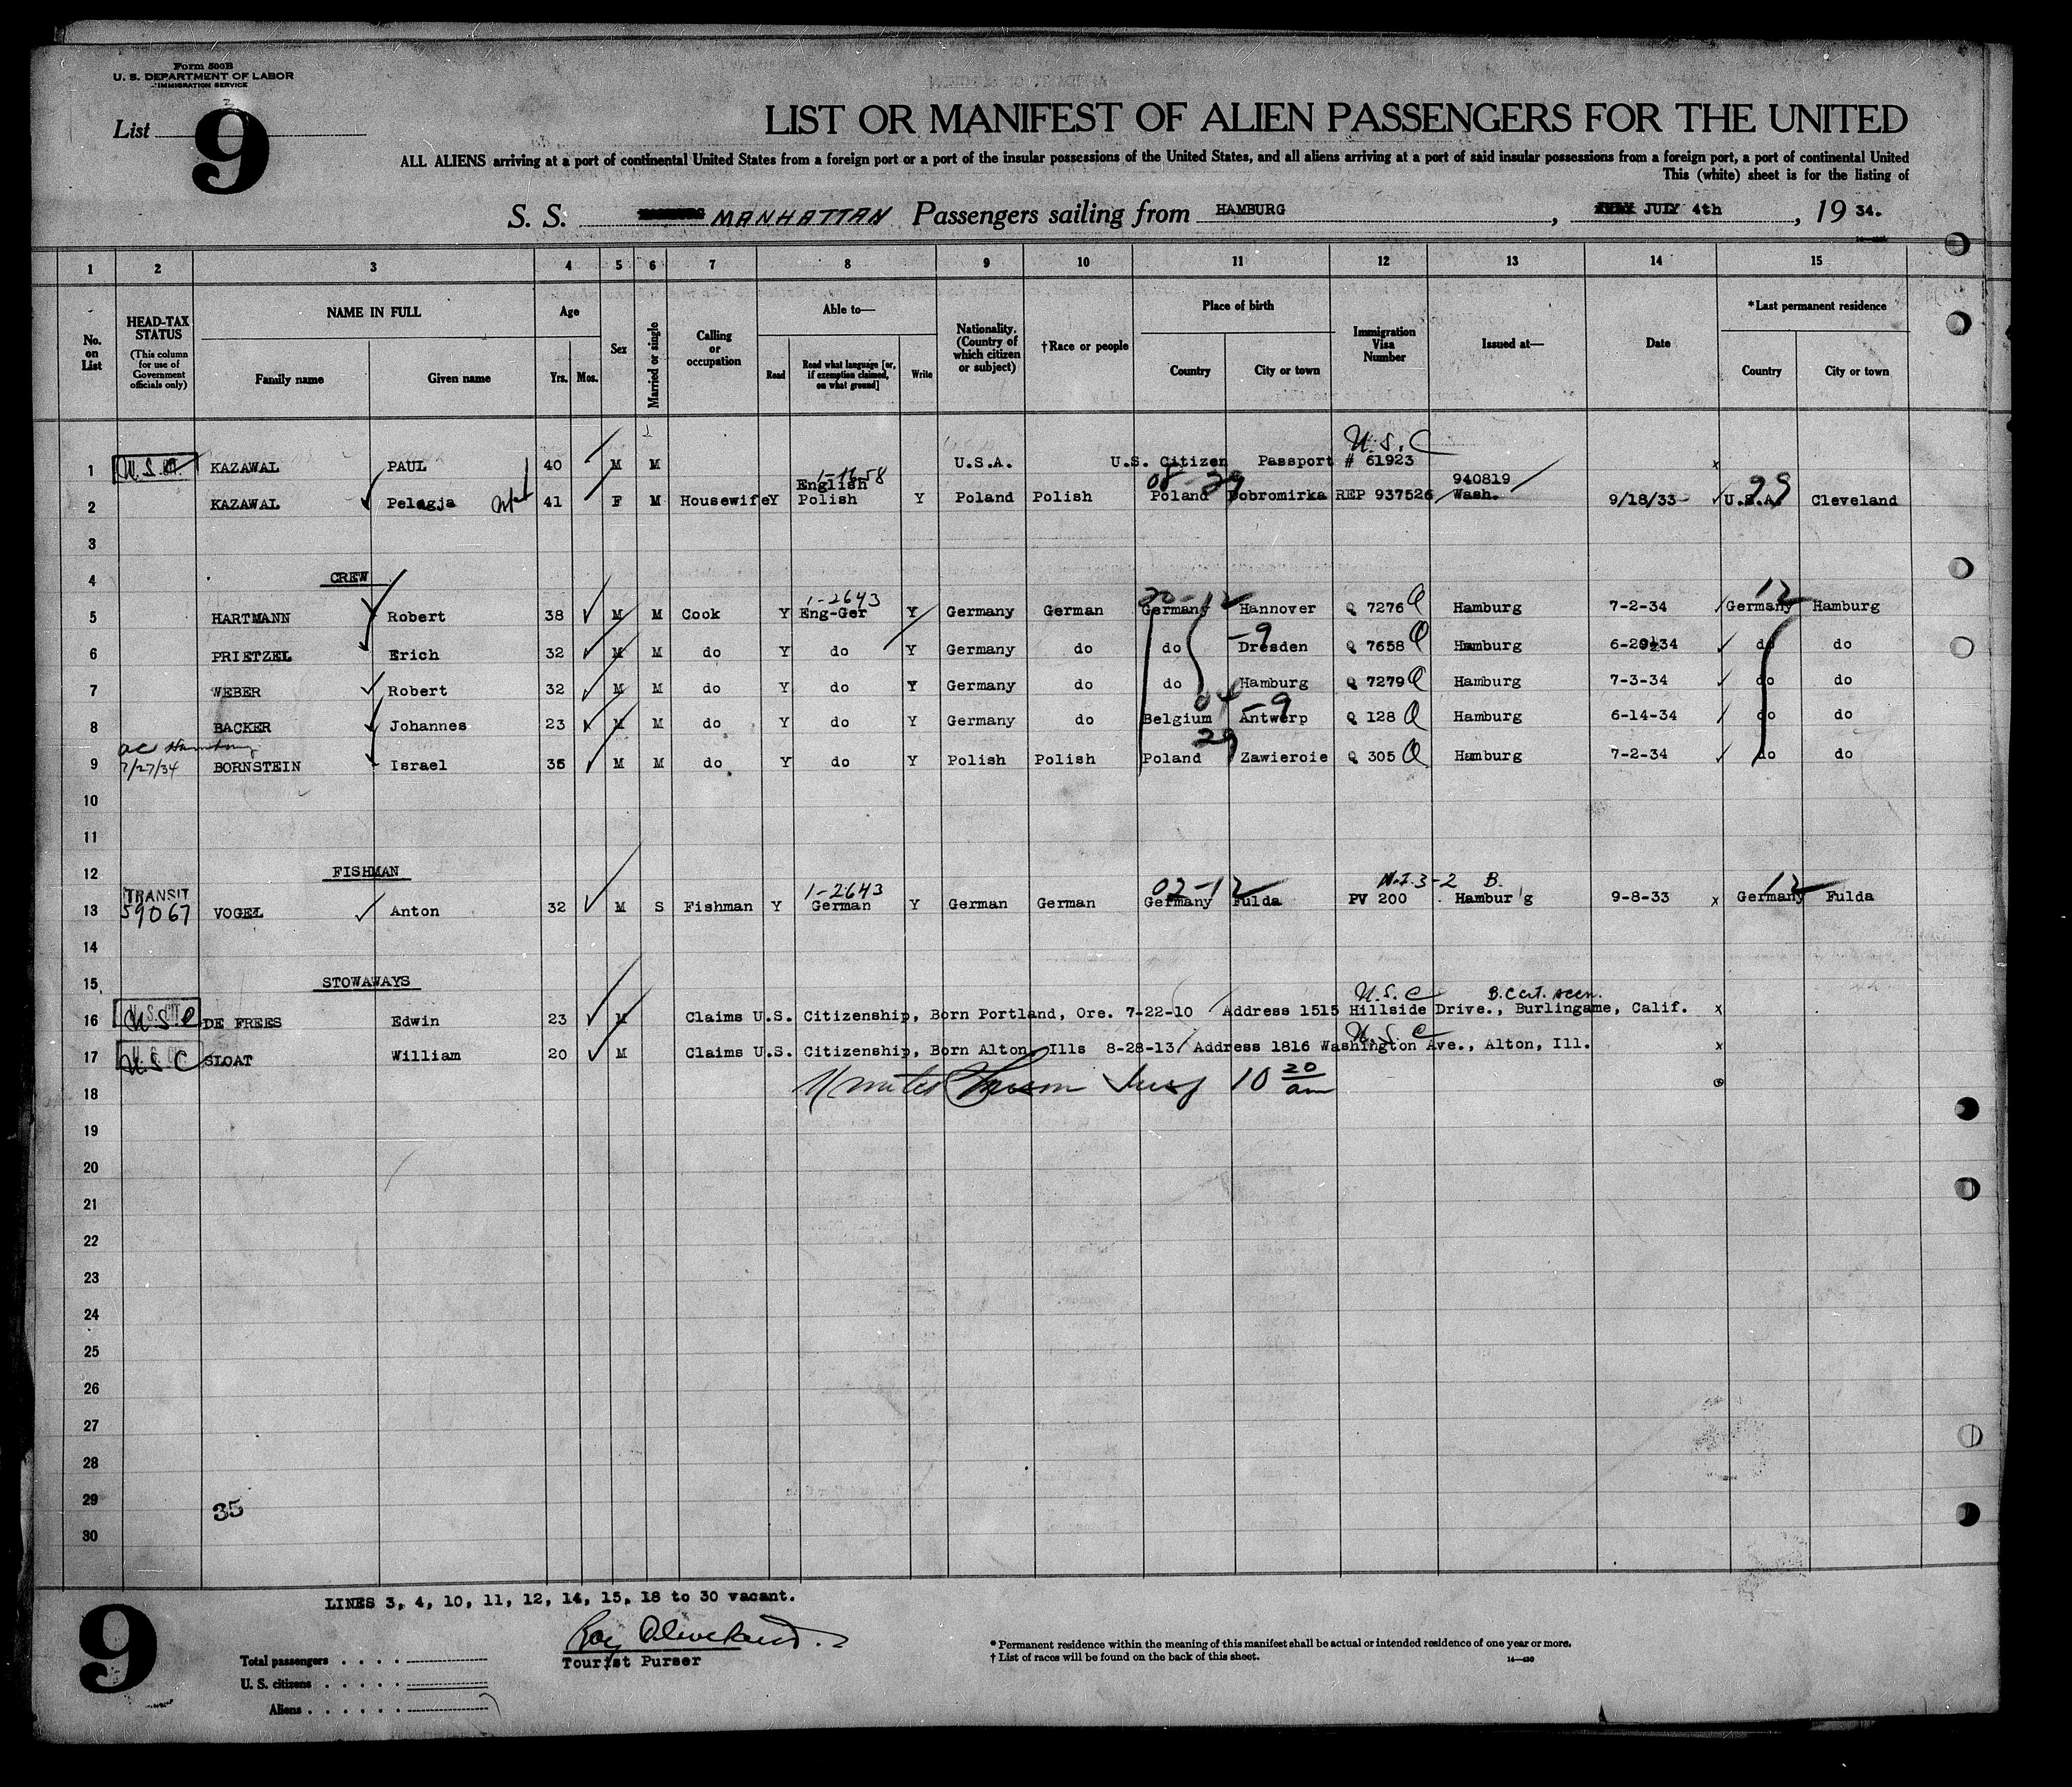 Form 500B
U. S. DEPARTMENT OF LABOR
IMMIGRATION SERVICE
List 9
LIST OR MANIFEST OF ALIEN PASSENGERS FOR THE UNITED
ALL ALIENS arriving at a port of continental United States from a foreign port or a port of the insular possessions of the United States, and all aliens arriving at a port of said insular possessions from a foreign port, a port of continental United
This (white) sheet is for the listing of
S. S. MANHATTAN Passengers sailing from HAMBURG, JULY 4th, 19 34.
1 2 3 4 5 6 7 8 9 10 11 12 13 14 15
No. on List
HEAD-TAX STATUS (This column for use of Government officials only)
NAME IN FULL Family name Given name
Age Yrs. Mos.
Sex
Married or single
Calling or occupation
Able to— Read Read what language [or, if exemption claimed, on what ground] Write
Nationality. (Country of which citizen or subject)
†Race or people
Place of birth Country City or town
Immigration Visa Number
Issued at—
Date
*Last permanent residence Country City or town
U.S.C
1 KAZAWAL PAUL 40 M M U.S.A. U.S. Citizen Passport # 61923 x
English 940819
2 KAZAWAL Pelagja 41 F M Housewife Y Polish Y Poland Polish Poland Dobromirka REP 937526 Wash. 9/18/33 U.S.A. Cleveland
3
4 CREW
1-2643 20-12 12
5 HARTMANN Robert 38 M M Cook Y Eng-Ger Y Germany German Germany Hannover Q 7276 Hamburg 7-2-34 Germany Hamburg
-9
6 PRIETZEL Erich 32 M M do Y do Y Germany do do Dresden Q 7658 Hamburg 6-29-34 do do
7 WEBER Robert 32 M M do Y do Y Germany do do Hamburg Q 7279 Hamburg 7-3-34 do do
04 -9
8 BACKER Johannes 23 M M do Y do Y Germany do Belgium Antwerp Q 128 Hamburg 6-14-34 do do
29
7/27/34
9 BORNSTEIN Israel 35 M M do Y do Y Polish Polish Poland Zawieroie Q 305 Hamburg 7-2-34 do do
10
11
12 FISHMAN
TRANSIT 1-2643 02-12 N.I.3-2 B. 12
59067
13 VOGEL Anton 32 M S Fishman Y German Y German German Germany Fulda PV 200 Hambur g 9-8-33 x Germany Fulda
14
15 STOWAWAYS
U.S.C B. Cert. seen.
16 U.S.C DE FREES Edwin 23 M Claims U.S. Citizenship, Born Portland, Ore. 7-22-10 Address 1515 Hillside Drive., Burlingame, Calif. x
U.S.C
17 U.S.C SLOAT William 20 M Claims U.S. Citizenship, Born Alton, Ills 8-28-13 Address 1816 Washington Ave., Alton, Ill. x
10 20 am
18
19
20
21
22
23
24
25
26
27
28
29 35
30
LINES 3, 4, 10, 11, 12, 14, 15, 18 to 30 vacant.
9
Tourist Purser
Total passengers
U. S. citizens
Aliens
*Permanent residence within the meaning of this manifest shall be actual or intended residence of one year or more.
† List of races will be found on the back of this sheet.